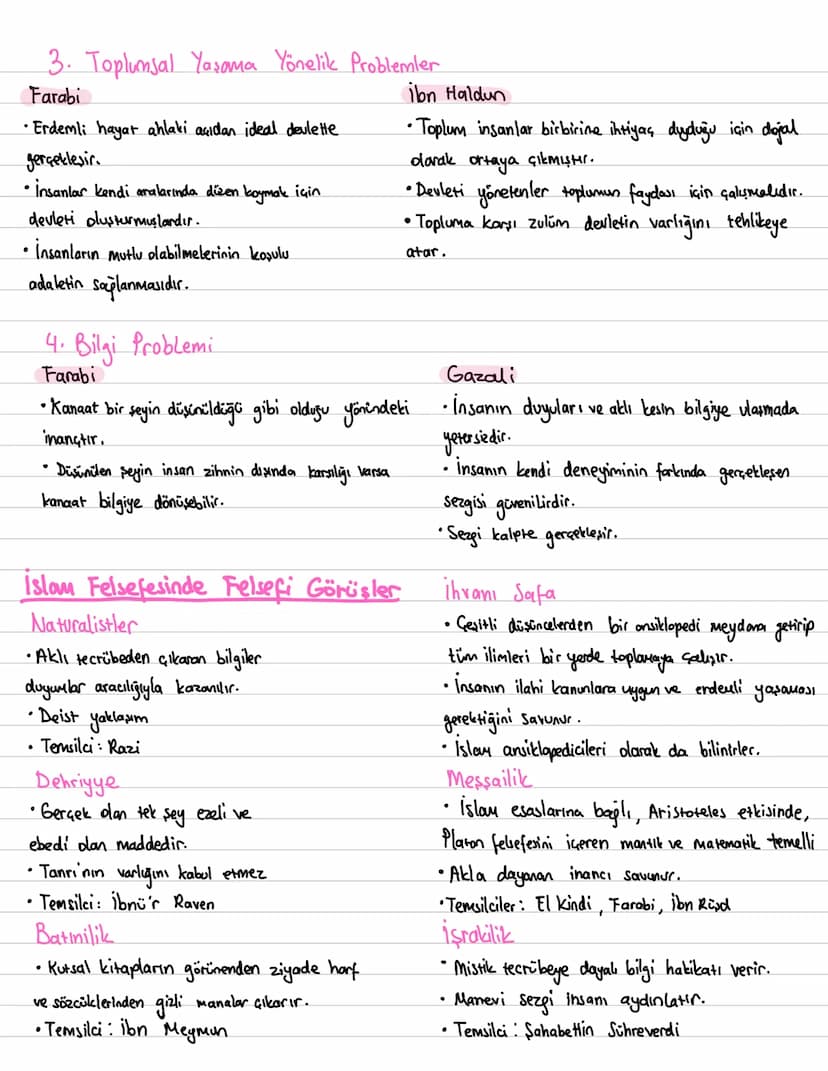 3. Toplumsal Yaşama Yönelik Problemler
Farabi
• Erdemli hayat ahlaki açıdan ideal devlette
gerçekleşir.
• İnsanlar kendi aralarında düzen koymak için
devleti oluşturmuşlardır.
• İnsanların mutlu olabilmelerinin koşulu
adaletin sağlanmasıdır.
İbn Haldun
• Toplum insanlar birbirine ihtiyaç duyduğu için doğal
olarak ortaya çıkmıştır.
• Devleti yönetenler toplumun faydası için çalışmalıdır.
• Topluma karşı zulüm devletin varlığını tehlikeye
atar.
4. Bilgi Problemi
Farabi
• Kanaat bir şeyin düşünüldüğü gibi olduğu yönündeki
inançtır.
• Düşünülen şeyin insan zihnin dışında karşılığı varsa
kanaat bilgiye dönüşebilir.
Gazali
• İnsanın duyuları ve aklı kesin bilgiye ulaşmada
yetersizdir.
• İnsanın kendi deneyiminin farkında gerçekleşen
sezgisi güvenilirdir.
• Sezgi kalpte gerçekleşir.
İslam Felsefesinde Felsefi Görüşler
Naturalistler
• Aklı tecrübeden çıkaran bilgiler
duyumlar aracılığıyla kazanılır.
• Deist yaklaşım
• Temsilci: Razi
Dehriyye
• Gerçek olan tek şey ezeli ve
ebedi olan maddedir.
• Tanrı'nın varlığını kabul etmez
• Temsilci: İbnü'r Raven
Batınilik
• Kutsal kitapların görünenden ziyade harf
ve sözcüklerinden gizli manalar çıkarır.
• Temsilci: İbn Meymun
İhvanı Safa
• Çeşitli düşüncelerden bir ansiklopedi meydana getirip
tüm ilimleri bir yerde toplamaya çalışır.
• İnsanın ilahi kanunlara uygun ve erdemli yaşaması
gerektiğini savunur.
• İslam ansiklopedicileri olarak da bilinirler.
Meşşailik
• İslam esaslarına bağlı, Aristoteles etkisinde,
Platon felsefesini içeren mantık ve matematik temelli
• Akla dayanan inancı savunur.
• Temsilciler: El Kindi, Farabi, İbn Rüşd
İşrakilik
• Mistik tecrübeye dayalı bilgi hakikatı verir.
• Manevi sezgi insanı aydınlatır.
• Temsilci: Şahabettin Sühreverdi